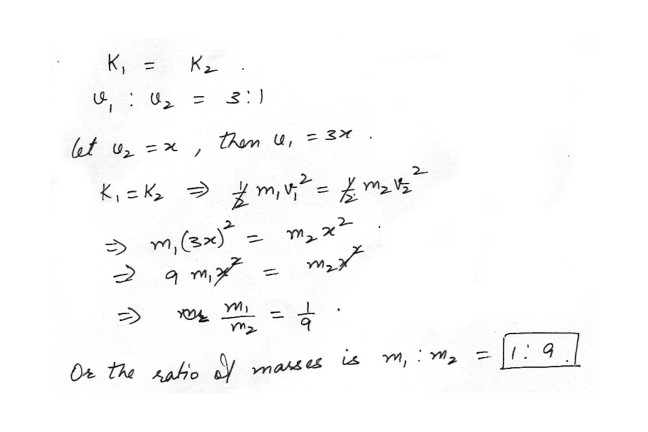 K₁ = K₂ .
v₁ : v₂ = 3:1
let v₂ = x , then v₁ = 3x .
K₁ = K₂ ⇒ ½ m₁v₁² = ½ m₂v₂²
⇒ m₁(3x)² = m₂x² .
⇒ 9 m₁x² = m₂x²
⇒ m₁/m₂ = 1/9 .
Or the ratio of masses is m₁ : m₂ = 1 : 9.